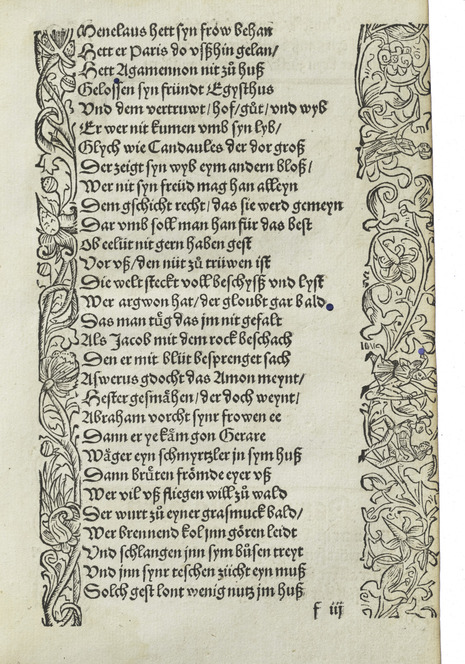 Menelaus hett syn frow behan
Hett er Paris do vsßhin gelan/
Hett Agamennon nit zů huß
Gelossen syn fründt Egysthus
Vnd dem vertruwt/hof/gůt/vnd wyb
Er wer nit kumen vmb syn lyb/
Glych wie Candaules der dor groß
Der zeigt syn wyb eym andern bloß/
Wer nit syn freüd mag han alleyn
Dem gschicht recht/das sie werd gemeyn
Dar vmb soll man han für das best
Ob eelüt nit gern haben gest
Vor vß/den nüt zů trüwen ist
Die welt steckt voll beschysß vnd lyst
Wer argwon hat/der gloubt gar bald
Das man tüg das jm nit gefalt
Als Jacob mit dem rock beschach
Den er mit blüt besprenget sach
Aswerus gdocht das Amon meynt/
Hester gesmåhen/der doch weynt/
Abraham vorcht synr frowen ee
Dann er ye kåm gon Gerare
Wåger eyn schmyrtzler jn sym huß
Dann brůten frömde eyer vß
Wer vil vß fliegen will zů wald
Der wurt zů eyner grasmuck bald/
Wer brennend kol jnn gören leidt
Vnd schlangen jnn sym bůsen treyt
Vnd jnn synr teschen zücht eyn muß
Solch gest lont wenig nutz jm huß
f iij